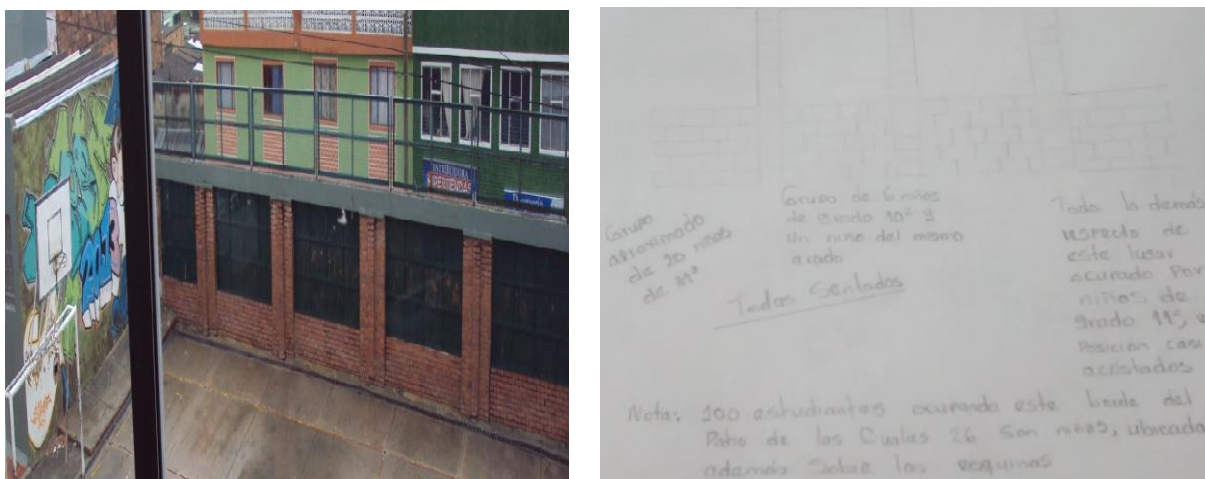 2013
DISTRIBUIDORA
Grupo
aproximado
de 20 niñas
de 11º
Grupo de 6 niñas
de grado 10º y
un niño del mismo
grado
Todas Sentados
Todo lo demás
respecto de
este lugar
ocupado por
niños de
grado 11º,
Posición casi
acostados
Nota: 100 estudiantes ocupando este borde del
Patio de las Cuales 26 son niñas, ubicada
además Sobre las esquinas